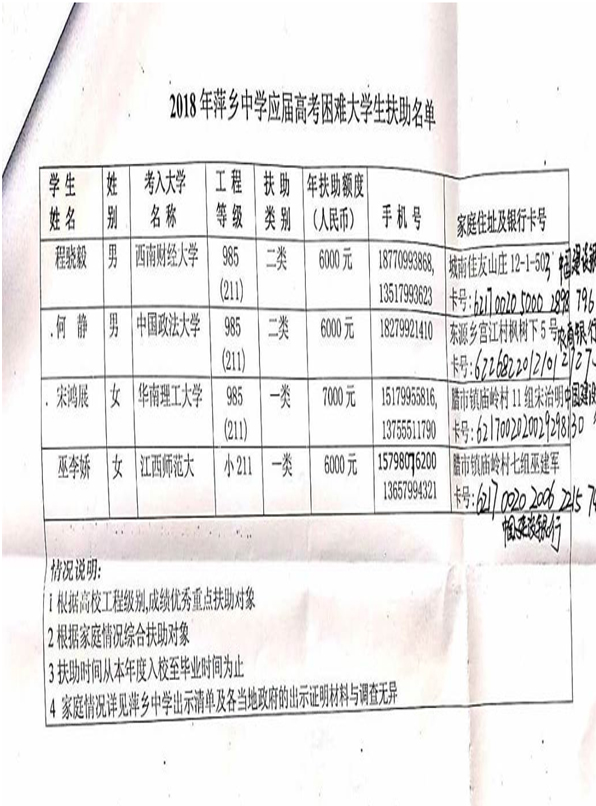 2018年萍乡中学应届高考困难大学生扶助名单
学生姓名 性别 考入大学名称 工程等级 扶助类别 年扶助额度(人民币) 手机号 家庭住址及银行卡号
程骁毅 男 西南财经大学 985 二类 6000元 18770993868, 城南佳友山庄12-1-503 中国建设
(211) 13517993623 卡号:6217 0020 5000 2898 796
.何 静 男 中国政法大学 985 二类 6000元 18279921410 东源乡宫江村枫树下5号 农商银行
(211) 卡号:
宋鸿展 女 华南理工大学 985 一类 7000元 15179955816, 腊市镇庙岭村11组宋治明 中国建设
(211) 13755511790 卡号:
巫李娇 女 江西师范大 小211 一类 6000元 15798076200 腊市镇庙岭村七组巫建军
13657994321 卡号:6217 0020 2006 2215
中国建设银行
情况说明:
1 根据高校工程级别,成绩优秀重点扶助对象
2 根据家庭情况综合扶助对象
3 扶助时间从本年度入校至毕业时间为止
4 家庭情况详见萍乡中学出示清单及各当地政府的出示证明材料与调查无异